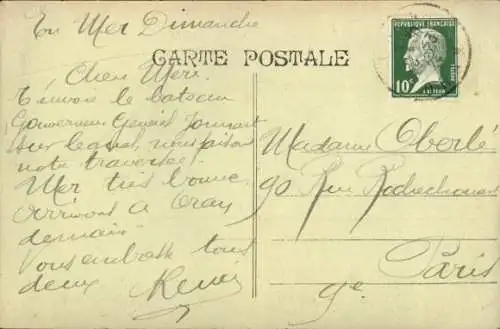 En Mer Dimanche
CARTE POSTALE
REPUBLIQUE FRANÇAISE
10c
POSTES
Chère Mère.
T'envoie le bateau
Gouverneur Général Jonnart
sur lequel nous faisons
notre traversée.
Mer très bonne
arrivons à Oran
demain
Vous embrasse tous
deux
Madame Oberlé
90 Rue Rochechouart
Paris
9e